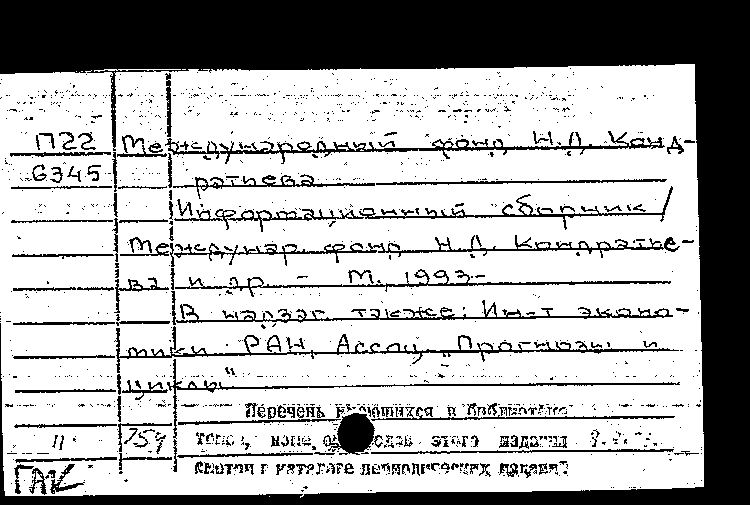 П22 Международный фонд Н.Д. Конд-
6345 ратьева
Информационный сборник /
Междунар. фонд Н.Д. Кондратье-
ва и др. - М., 1993-
В надзаг. также: Ин-т эконо-
мики РАН, Ассоц. „Прогнозы и
циклы"
Перечень имеющихся в библиотеке
11 754 томов, номеров этого издания
ГАК смотри в каталоге периодических изданий